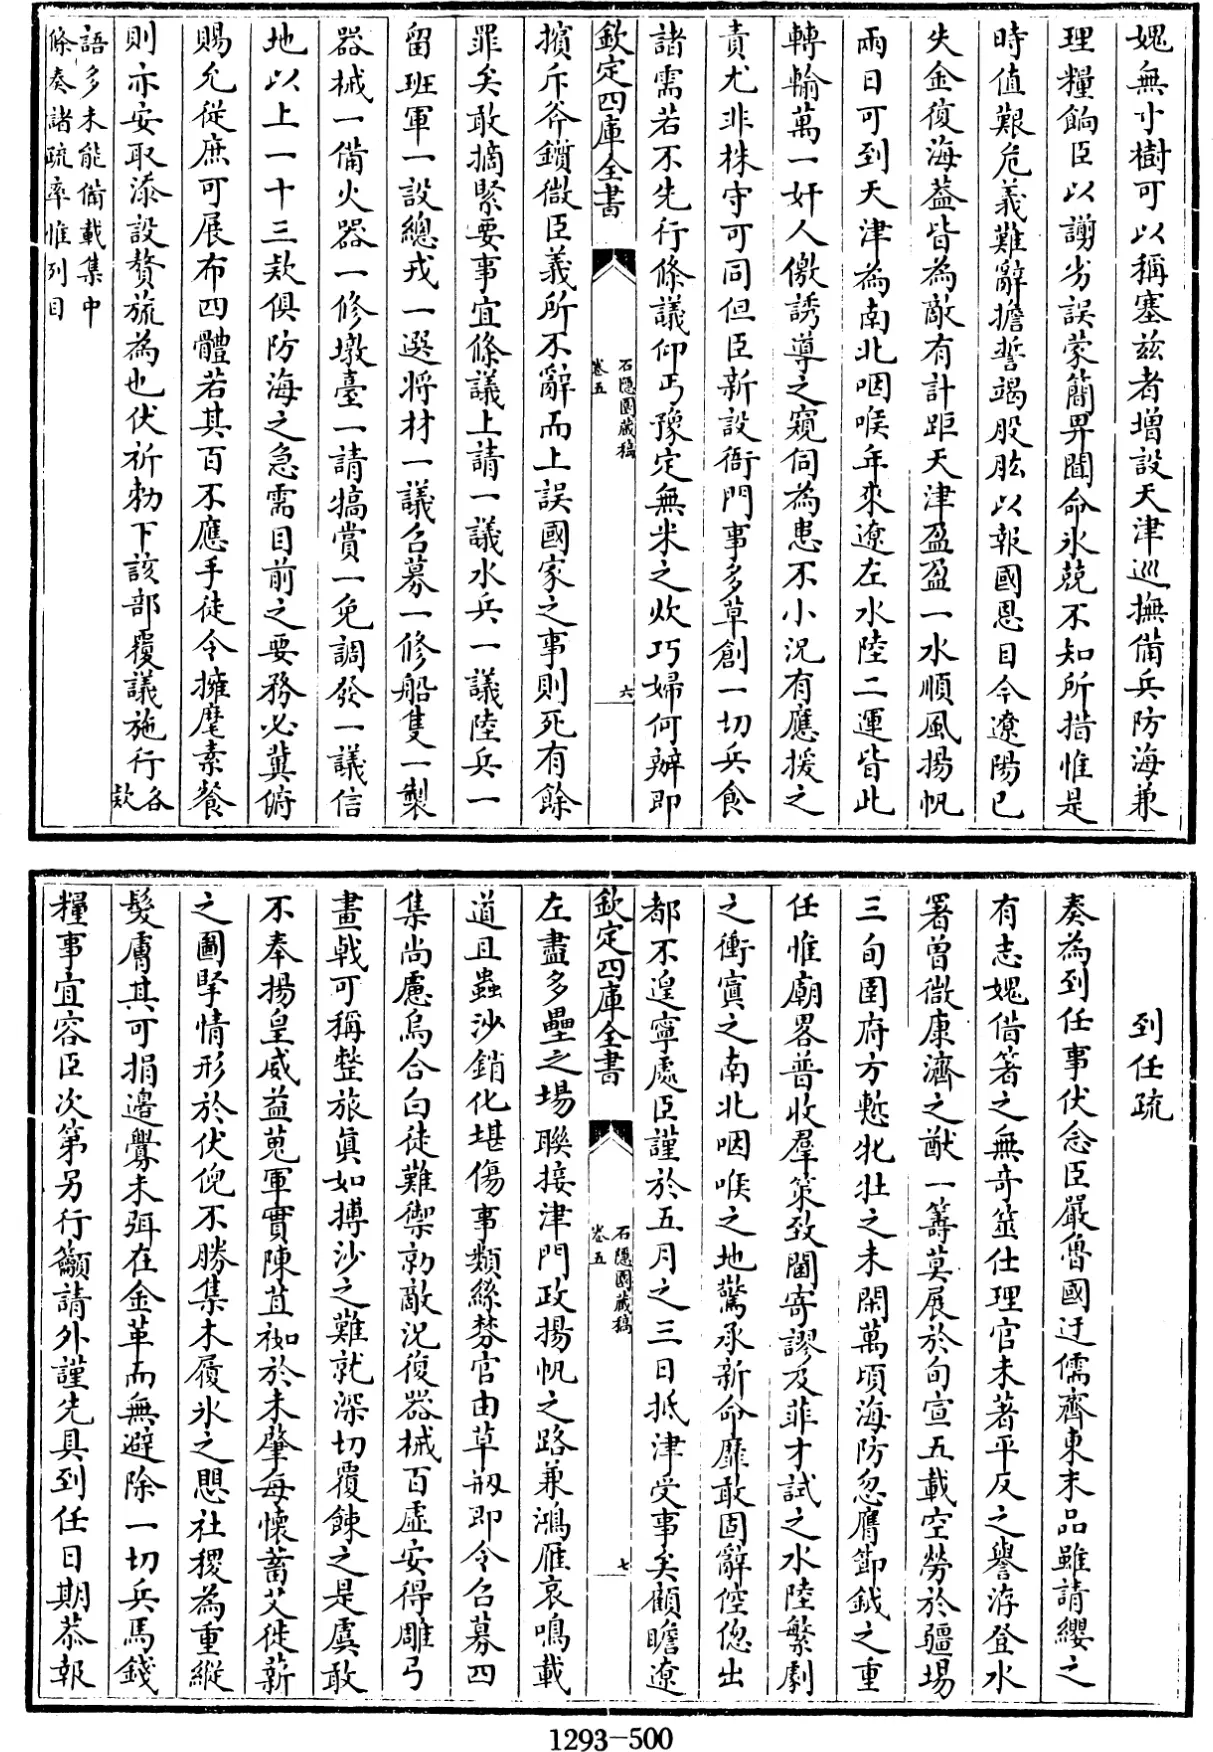 媿無寸樹可以稱塞兹者增設天津巡撫備兵防海兼
理糧餉臣以謭劣誤蒙簡畀聞命氷兢不知所措惟是
時值艱危義難辭擔誓竭股肱以報國恩目今遼陽已
失金復海葢皆為敵有計距天津盈盈一水順風揚帆
兩日可到天津為南北咽喉年來遼左水陸二運皆此
轉輸萬一奸人儌誘導之窺伺為患不小況有應援之
責尤非株守可同但臣新設衙門事多草創一切兵食
諸需若不先行條議仰丐豫定無米之炊巧婦何辦即
欽定四庫全書
石隱園藏稿
卷五
六
擯斥斧鑕微臣義所不辭而上誤國家之事則死有餘
罪矣敢摘緊要事宜條議上請一議水兵一議陸兵一
留班軍一設總戎一選將材一議召募一修船隻一製
器械一備火器一修墩臺一請犒賞一免調發一議信
地以上一十三欵俱防海之急需目前之要務必冀俯
賜允從庶可展布四體若其百不應手徒令擁麾素餐
則亦安取添設贅旒為也伏祈勅下該部覆議施行各
欵
語多未能備載集中
條奏諸疏率惟列目
到任疏
奏為到任事伏念臣嚴魯國迂儒齊東末品雖請纓之
有志媿借箸之無竒筮仕理官未著平反之譽洊登水
署曾微康濟之猷一籌莫展於旬宣五載空勞於疆埸
三旬圉府方慙牝牡之未閑萬頃海防忽膺節鉞之重
任惟廟畧普收羣策致閫寄謬及菲才試之水陸繁劇
之衝寘之南北咽喉之地驚承新命靡敢固辭倥偬出
都不遑寧處臣謹於五月之三日抵津受事矣顧瞻遼
欽定四庫全書
石隱園藏稿
卷五
七
左盡多壘之場聯接津門政揚帆之路兼鴻雁哀鳴載
道且蟲沙銷化堪傷事類絲棼官由草剏即令召募四
集尚慮烏合白徒難禦勍敵況復器械百虛安得雕弓
畫戟可稱整旅眞如搏沙之難就深切覆餗之是虞敢
不奉揚皇威益蒐軍實陳苴袽於未肇每懷蓄艾徙薪
之圖揫情形於伏俔不勝集木履氷之思社稷為重縱
髮膚其可捐邉釁未弭在金革而無避除一切兵馬錢
糧事宜容臣次第另行籲請外謹先具到任日期恭報
1293-500